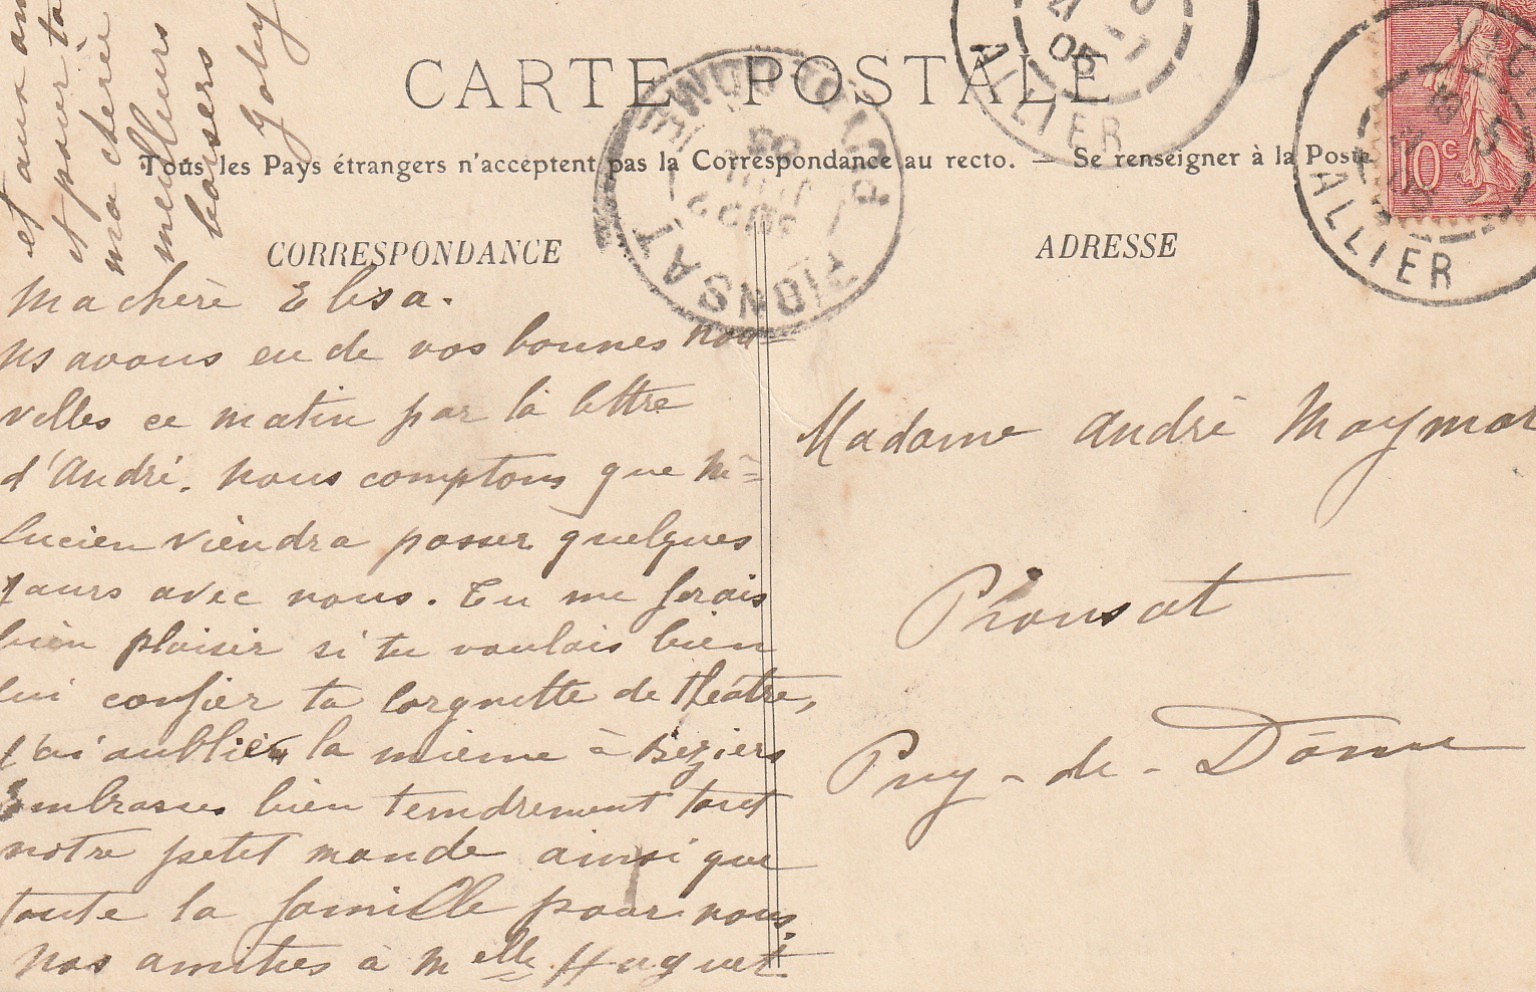 CARTE POSTALE
Tous les Pays étrangers n'acceptent pas la Correspondance au recto. — Se renseigner à la Poste
CORRESPONDANCE
Ma chère Elisa.
Ns avons eu de vos bonnes nou-
velles ce matin par la lettre
d'André. Nous comptons que
Lucien viendra passer quelques
jours avec nous. Tu me ferais
bien plaisir si tu voulais bien
lui confier ta lorgnette de théâtre,
j'ai oublié la mienne à Beziers
Embrasses bien tendrement tout
notre petit monde ainsi que
toute la famille pour nous.
Nos amitiés à Melle Huguet.
et aux
et pour ta
ma chérie
meilleurs
baisers
Joly
ADRESSE
Madame André Maymat
Pionsat
Puy-de-Dôme
PIONSAT
PUY-DE-DOME
05
ALLIER
05
ALLIER
10c